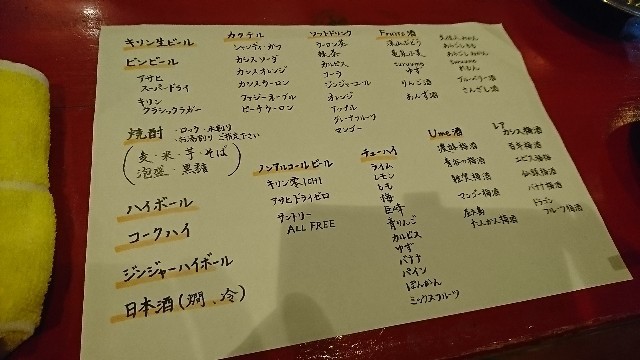 キリン生ビール
ビンビール
アサヒ
スーパードライ
キリン
クラシックラガー
焼酎 ・ロック・水割り
・お湯割り ご指定下さい
(麦・米・芋・そば
泡盛・黒糖)
ハイボール
コークハイ
ジンジャーハイボール
日本酒(燗、冷)
カクテル
シャンディ・ガフ
カシスソーダ
カシスオレンジ
カシスウーロン
ファジーネーブル
ピーチウーロン
ノンアルコールビール
キリン零ICHI
アサヒドライゼロ
サントリー
ALL FREE
ソフトドリンク
ウーロン茶
緑茶
カルピス
コーラ
ジンジャーエール
オレンジ
アップル
グレープフルーツ
マンゴー
チューハイ
ライム
レモン
もも
梅
巨峰
青りんご
カルピス
ゆず
バナナ
パイン
ぽんかん
ミックスフルーツ
Fruits酒
ゆず
りんご酒
あんず酒
ブルーベリー酒
さんざし酒
Ume酒
マンゴー梅酒
だいだい梅酒
レア
カシス梅酒
バナナ梅酒
ドラゴン
フルーツ梅酒